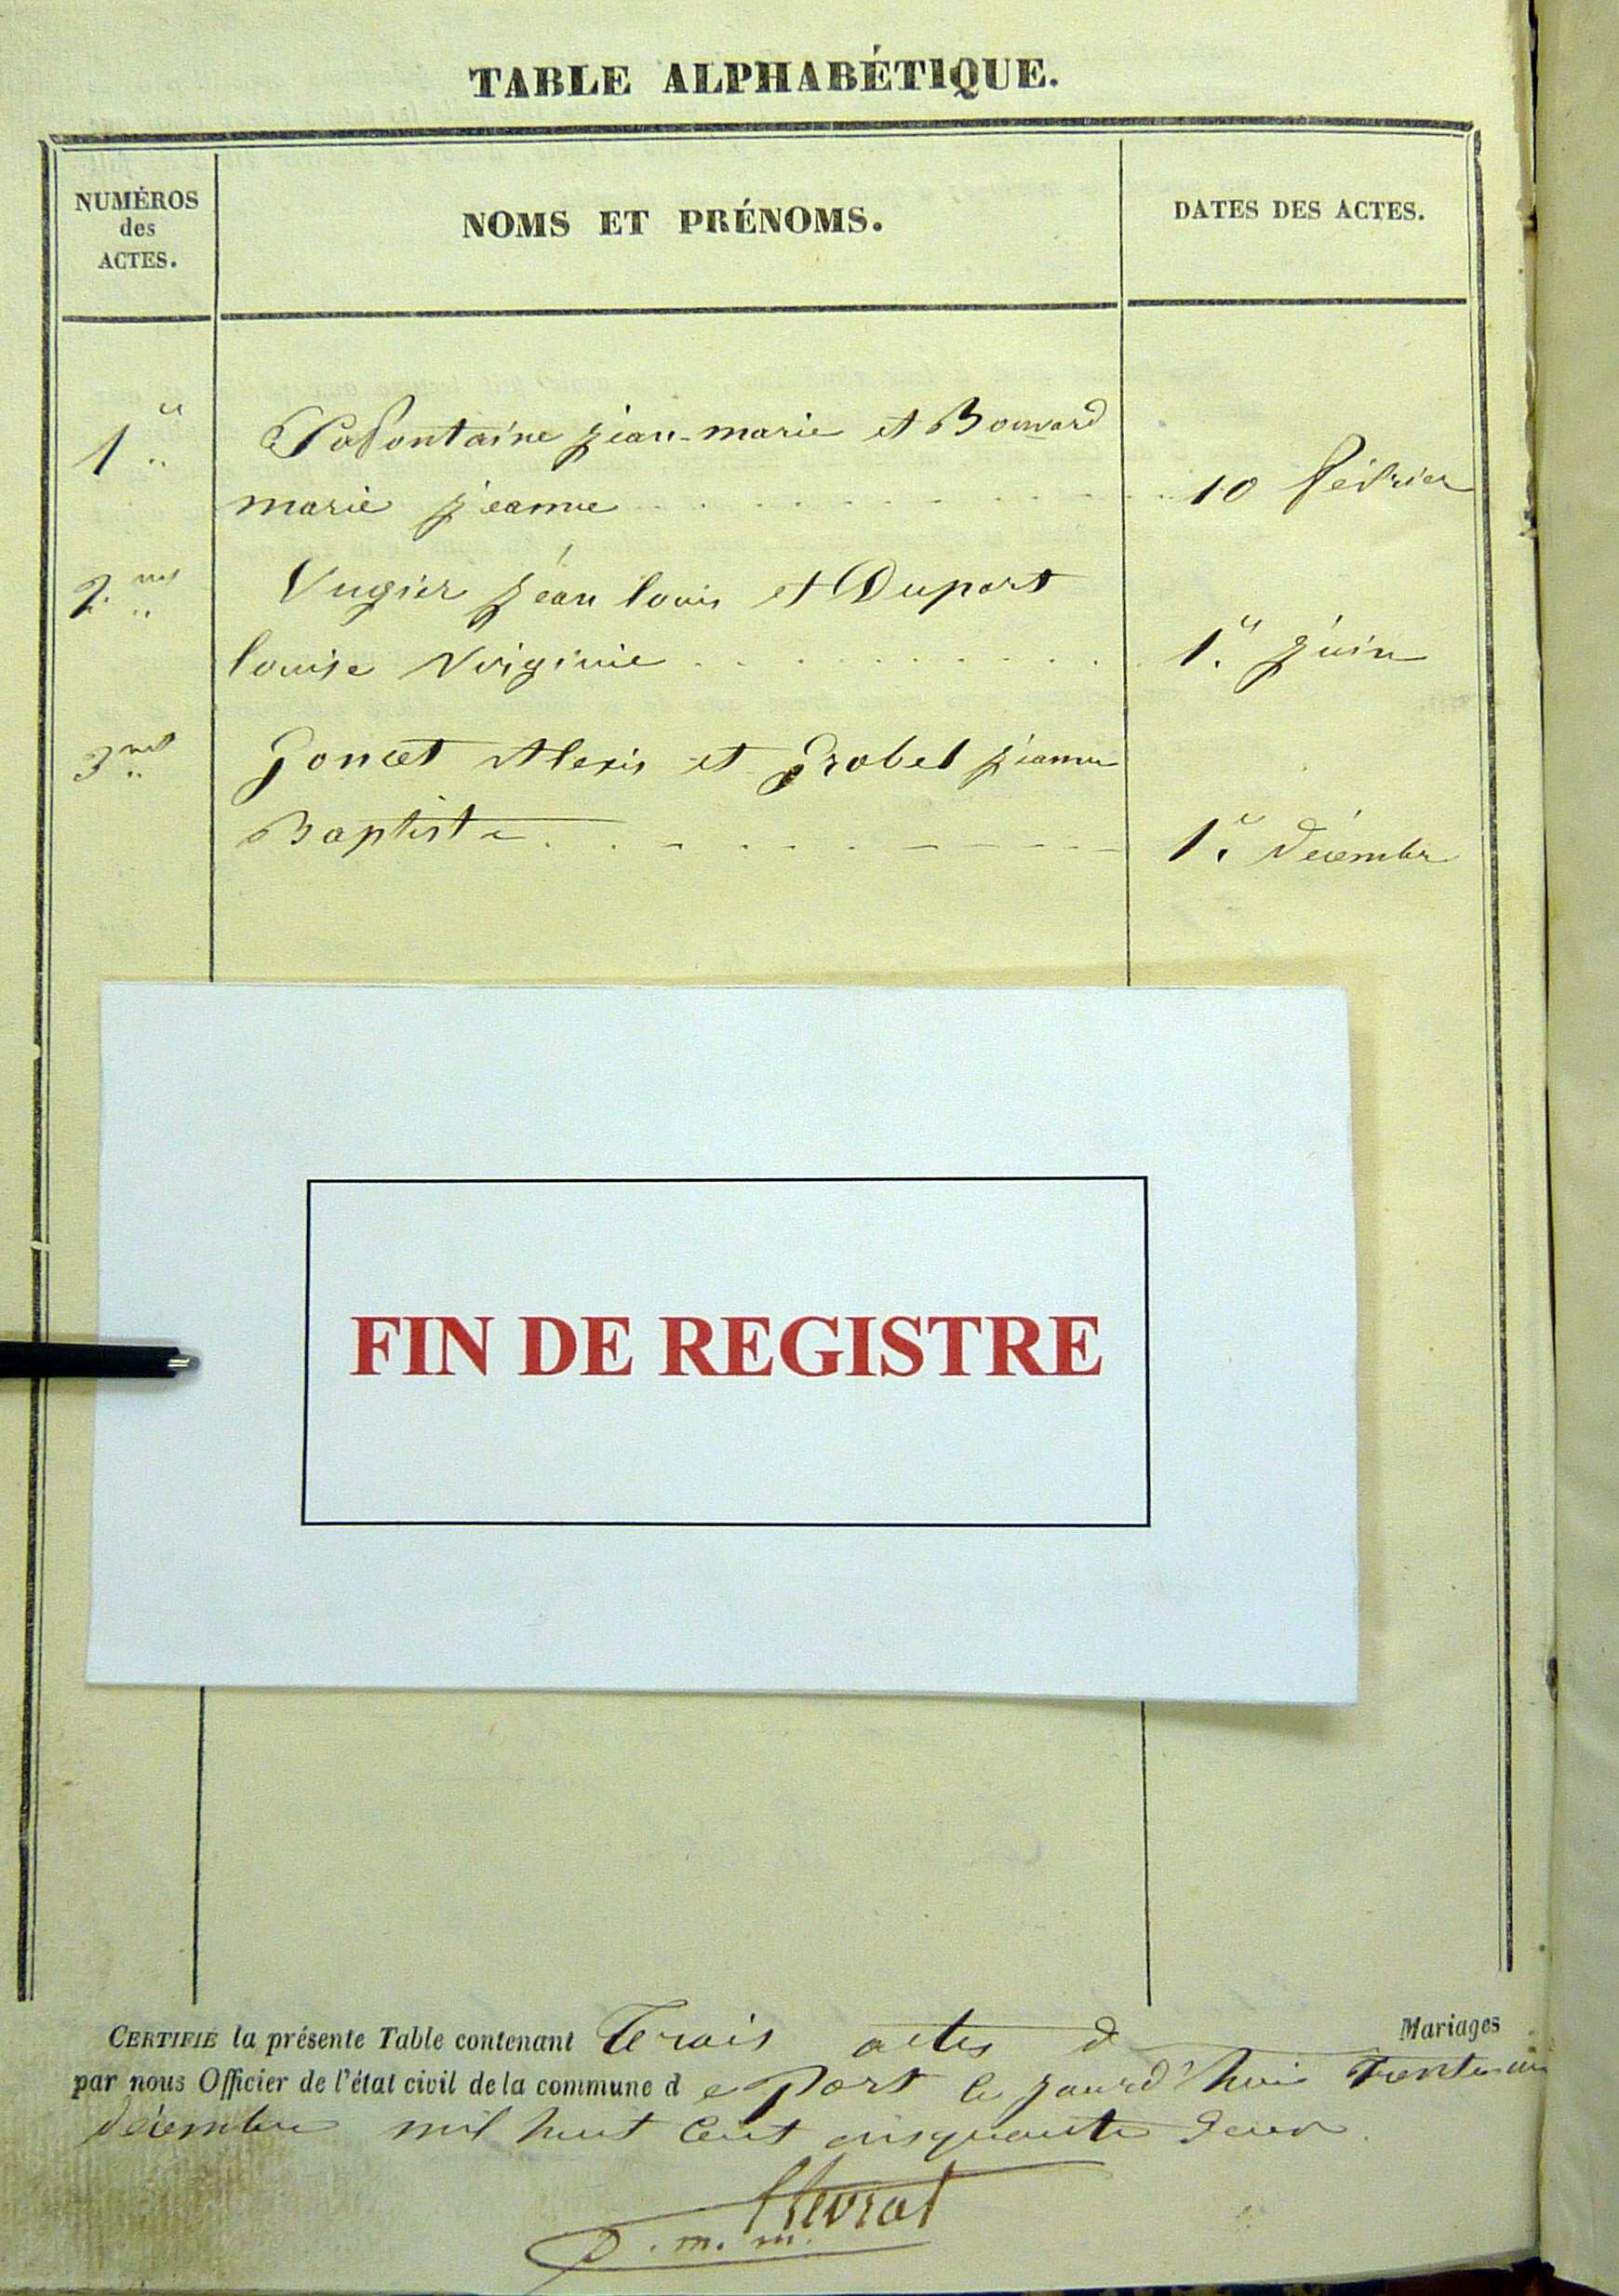 TABLE ALPHABÉTIQUE.
NUMÉROS
des
ACTES.
NOMS ET PRÉNOMS.
DATES DES ACTES.
1er Lafontaine jean-marie et Bouvard
marie jeanne 10 février
2me jean louis et Duport
louise Virginie 1er juin
3me Poncet Alexis et Probel jeanne
Baptiste 1er décembre
FIN DE REGISTRE
CERTIFIÉ la présente Table contenant Trois actes d Mariages
par nous Officier de l'état civil de la commune d e Port le jourd'hui trente un
décembre mil huit cent cinquante deux.